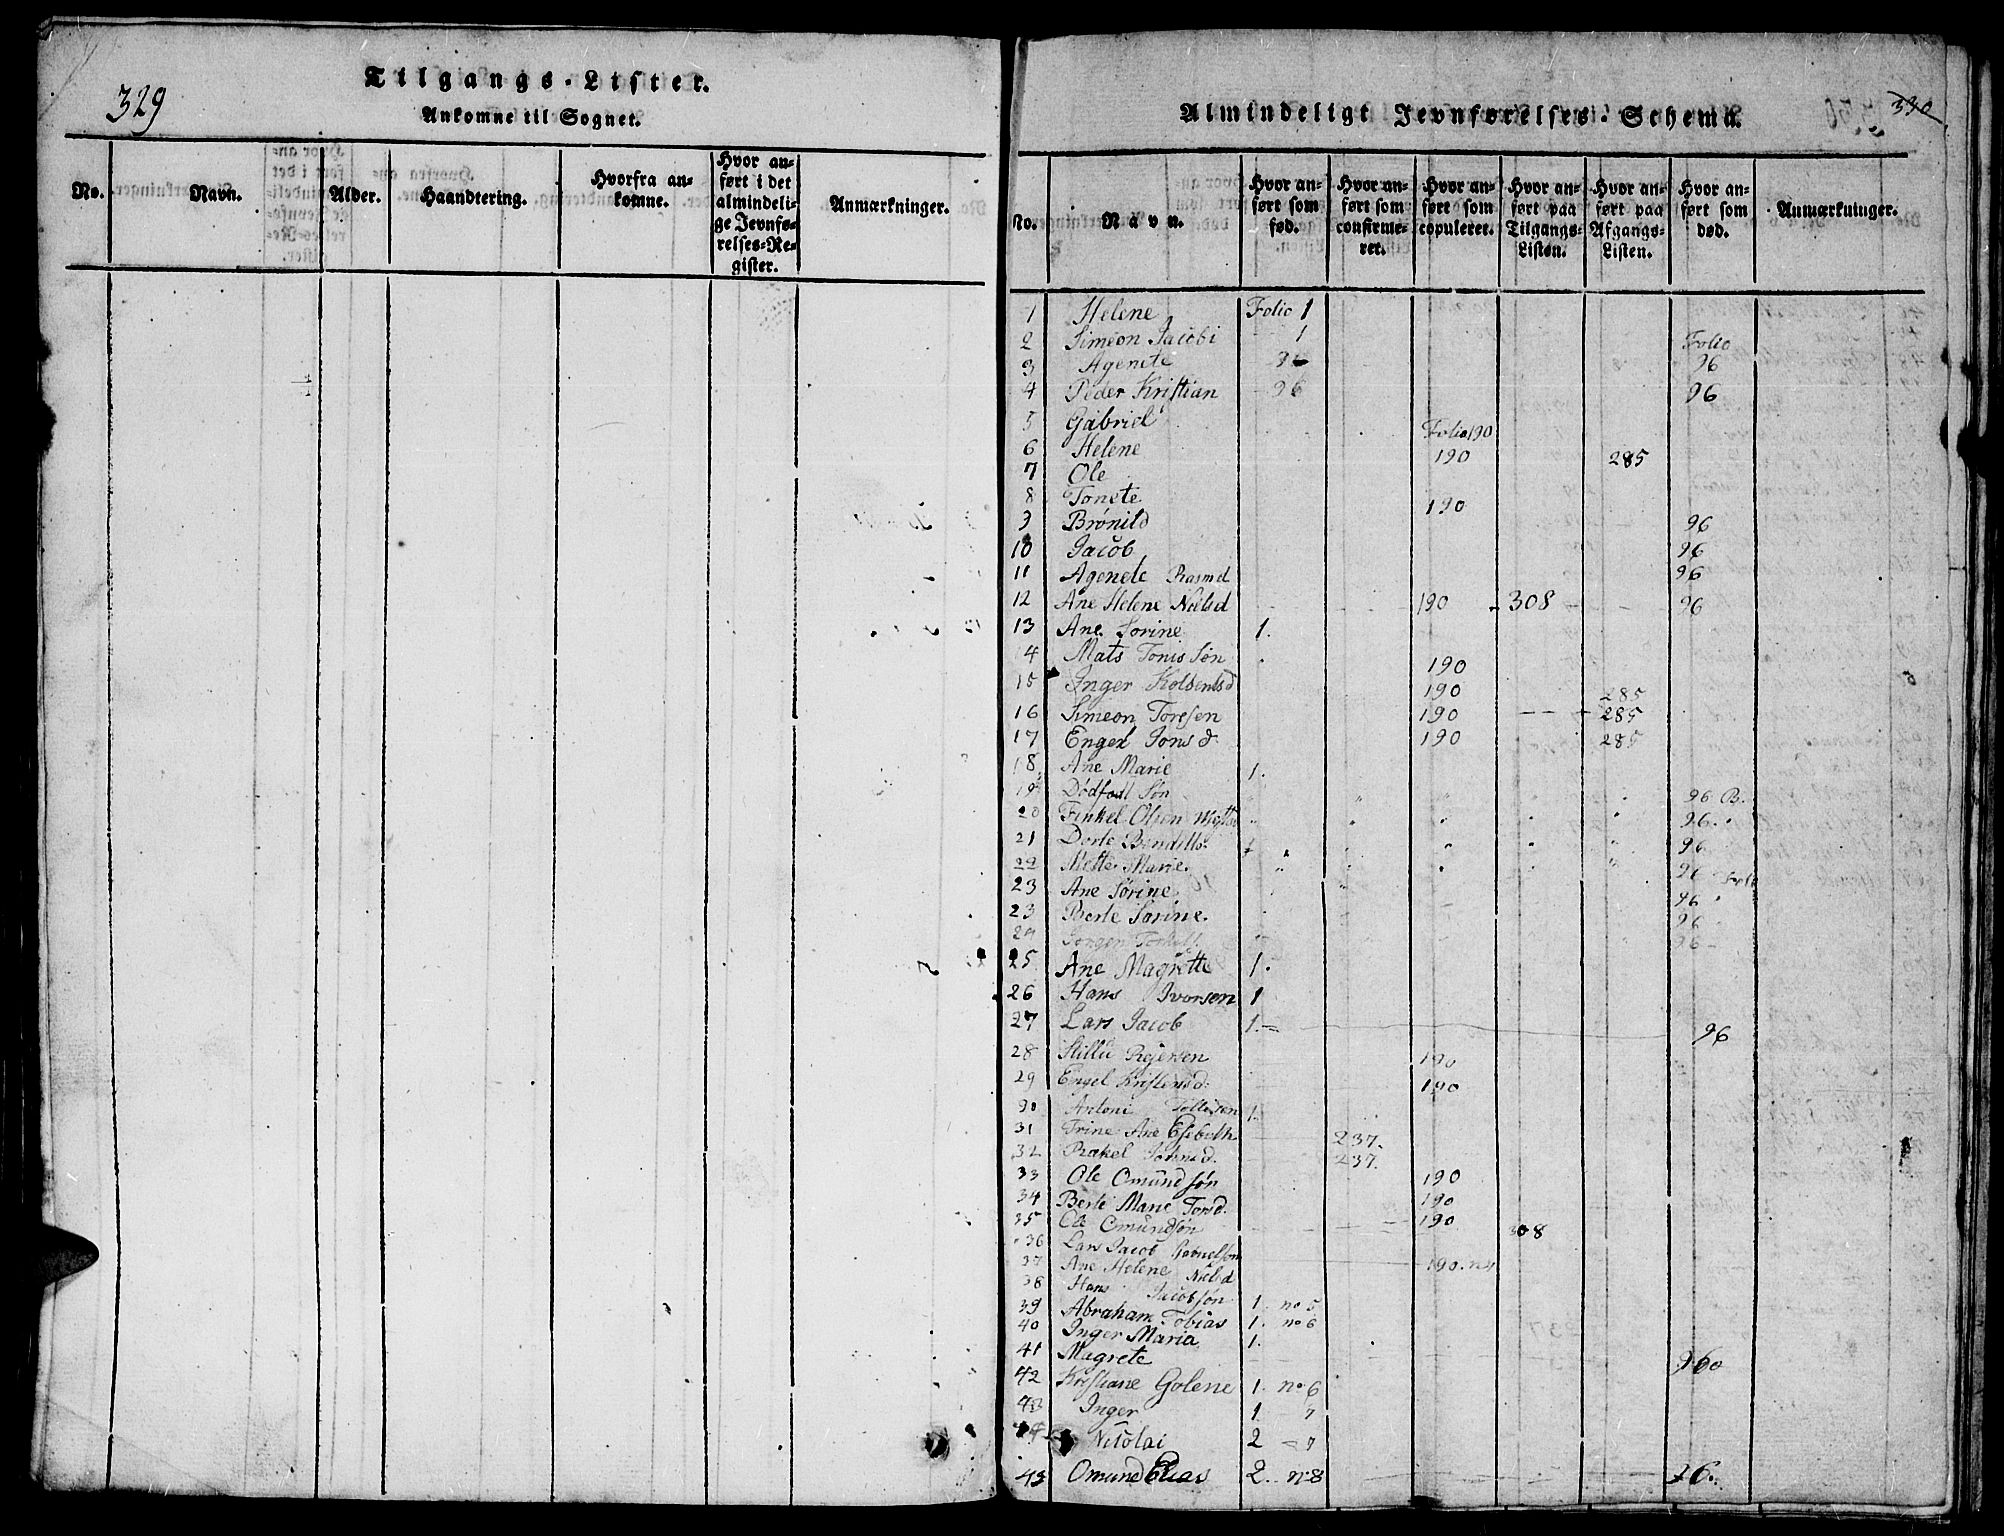 329
Tilgangs-Lister.
Ankomne til Sognet.
No.
Navn.
Alder.
Haandtering.
Hvorfra an-
komne.
Hvor an-
ført i det
almindeli-
ge Jevnfø-
relses-Re-
gister.
Anmærkninger.
330
Almindeligt Jevnførelses-Schema.
No.
Navn.
Hvor an-
ført som
fød.
Hvor an-
ført som
confirme-
ret.
Hvor an-
ført som
copuleret.
Hvor an-
ført paa
Tilgangs-
Listen.
Hvor an-
ført paa
Afgangs-
Listen.
Hvor an-
ført som
død.
Anmærkninger.
1 Helene Folio 1
2 Simeon Jacobi 1 Folio
3 Agenete 96 96
4 Peder Kristian 96 96
5 Gabriel Folio 190
6 Helene 190 285
7 Ole
8 Tonete 190
9 Brønild 96
10 Jacob 96
11 Agenete Rasmd 96
12 Ane Helene Nielsd 190 308 96
13 Ane Sorine 1.
14 Mats Tonis Søn 190
15 Inger 190 285
16 Simeon Toresen 190 285
17 Engel Jonsd 190 285
18 Ane Marie 1.
19 Dødfød Søn 96 B.
20 Olsen 96.
21 Dorte 96
22 Mette Marie 96
23 Ane Sørine 96
23 Berte Sorine. 96
24 Jørgen 96
25 Ane Magrette 1.
26 Hans Ivorsen 1
27 Lars Jacob 1. 96
28 Rejersen 190
29 Engel Kristensd. 190
30 Antoni Tollessen 1.
31 Trine Ane Esebeth 237.
32 Rakel 237.
33 Ole Omundsøn 190
34 Berte Marie Torsd. 190
35 Ole Omundsøn 190 308
36 Lars Jacob
37 Ane Helene Nielsd 190.
38 Hans Jacobsøn
39 Abraham Tobias 1. no 5
40 Inger Maria 1. no 6
41 Magrete 1. 96
42 Kristiane Golene 1. no 6
43 Inger 1 7
Nicolai 2 7
43 Omund Elias 2. no 8 96.